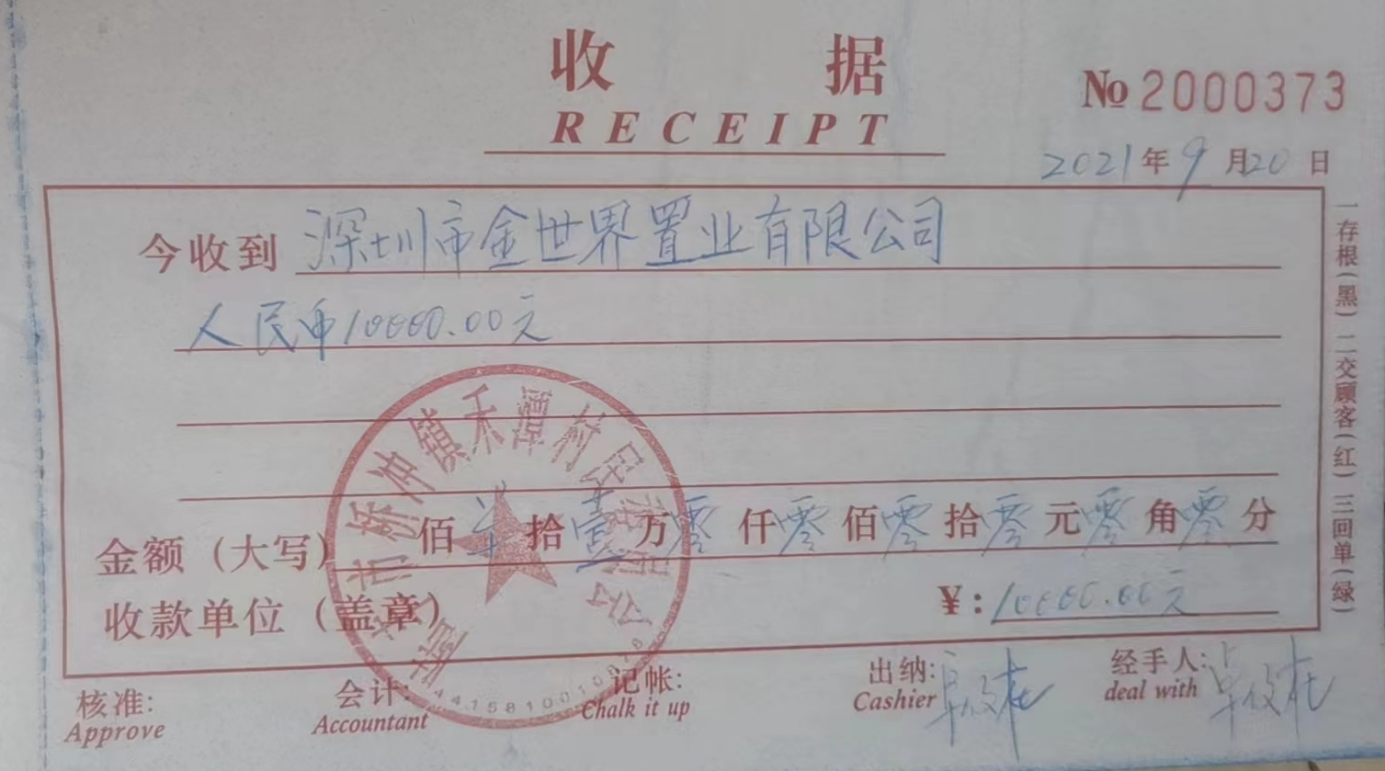 收 据
RECEIPT
№ 2000373
2021 年 9 月 20 日
今收到 深圳市金世界置业有限公司
人民币10000.00元
金额（大写） 佰 拾壹万零仟零佰零拾零元零角零分
收款单位（盖章）
¥：10000.00元
核准： 会计： 记帐： 出纳： 经手人：
Approve Accountant Chalk it up Cashier deal with
一存根（黑）二交顾客（红）三回单（绿）
市侨冲镇禾潭村民委员会